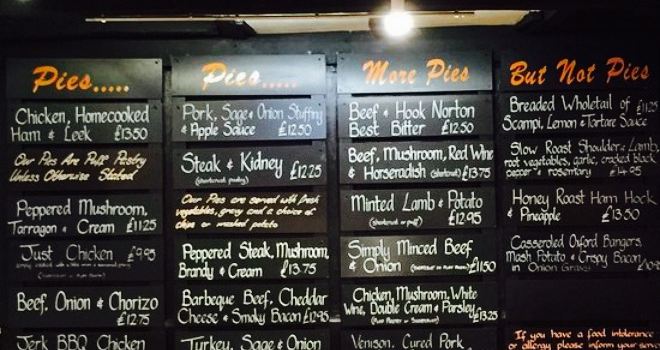 Pies.....
Chicken, Homecooked
Ham & Leek £13.50
Our Pies Are Puff Pastry
Unless Otherwise Stated
Peppered Mushroom,
Tarragon + Cream £11.25
Just Chicken £9.95
Beef, Onion & Chorizo
£12.75
Jerk BBQ Chicken
Pies.....
Pork, Sage & Onion Stuffing
& Apple Sauce £12.50
Steak & Kidney £12.25
(shortcrust pastry)
Our Pies are served with fresh
vegetables, gravy and a choice of
chips or mashed potato
Peppered Steak, Mushroom,
Brandy & Cream £13.75
Barbeque Beef, Cheddar
Cheese & Smoky Bacon £12.95
Turkey, Sage & Onion
More Pies
Beef & Hook Norton
Best Bitter £12.50
Beef, Mushroom, Red Wine
& Horseradish (shortcrust) £13.75
Minted Lamb & Potato
(shortcrust or puff) £12.95
Simply Minced Beef
& Onion (shortcrust or puff pastry) £11.50
Chicken, Mushroom, White
Wine, Double Cream & Parsley £13.25
(Puff Pastry or Shortcrust)
Venison, Cured Pork
But Not Pies
Breaded Wholetail of £11.25
Scampi, Lemon & Tartare Sauce
Slow Roast Shoulder of Lamb,
root vegetables, garlic, cracked black
pepper & rosemary £14.95
Honey Roast Ham Hock
& Pineapple £13.50
Casseroled Oxford Bangers,
Mash Potato & Crispy Bacon
in Onion Gravy
If you have a food intolerance
or allergy please inform your server